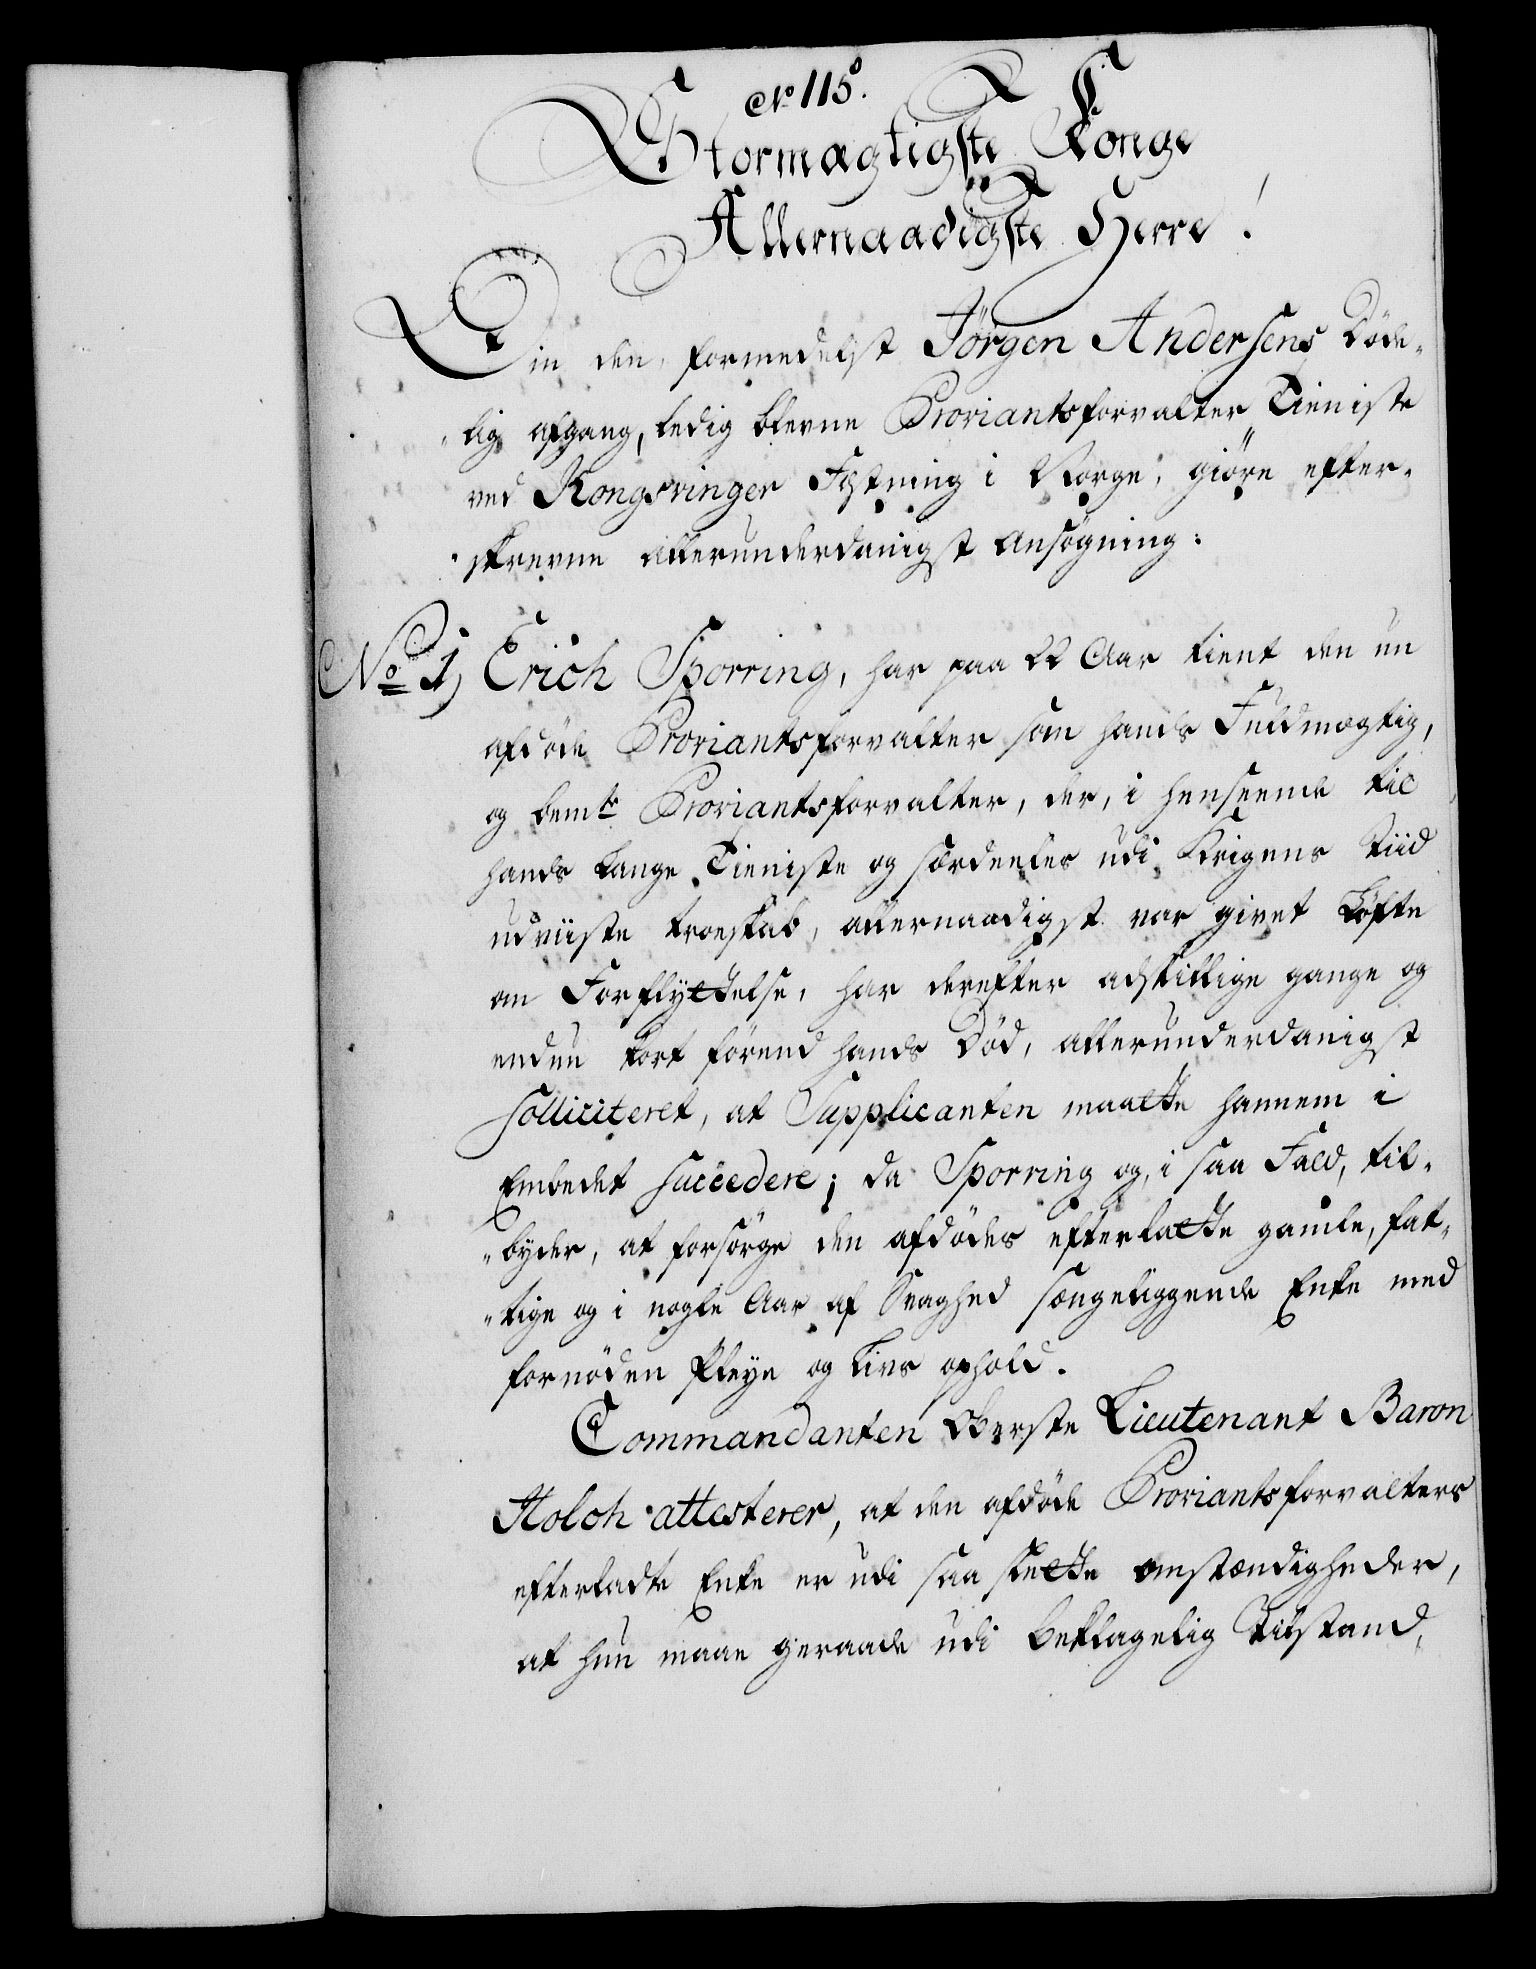 No 115.
Stormægtigste Konge
Allernaadigste Herre!
Om den, formedelst Jörgen Andersens Döde-
"lig afgang, ledig blevne Proviantsforvalter Tieniste
ved Kongsvinger Festning i Norge, giöre efter-
"skrevne allerunderdanigst Ansögning:
No 1, Erich Sporring, har paa 22 Aar tient den nu
afdöde Proviantsforvalter som hands Fuldmægtig,
og bemte Proviantsforvalter, der, i henseende til
hands lange Tieniste og særdeeles udi Krigens Tiid
udviiste troeskab, allernaadigst var givet Löfte
om Forflyttelse, har derefter adskillige gange og
endnu kort förend hands Död, allerunderdanigst
solliciteret, at Supplicanten maatte hannem i
Embedet succedere; da Sporring og, i saa Fald, til-
"byder, at forsörge den afdödes efterlatte gamle, fat-
"tige og i nogle Aar af Svaghed sængeliggende Enke med
fornöden Pleye og Livs ophold.
Commandanten Oberste Lieutenant Baron
Holch attesterer, at den afdöde Proviantsforvalters
efterladte Enke er udi saa slette omstændigheder,
at hun maae geraade udi beklagelig Tilstand,